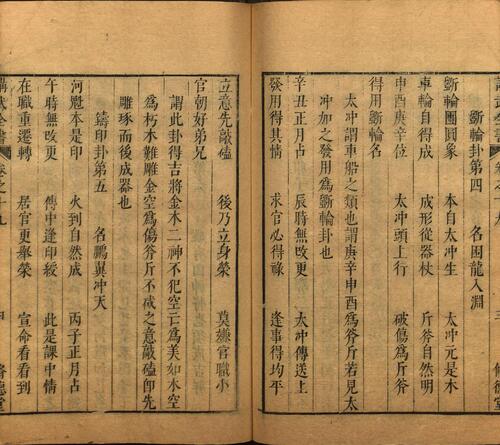 斲輪卦第四　名困龍入淵
斲輪團圓象　本自太冲生　太冲元是木
車輪自得成　成形從器杖　斤斧自然明
申酉庚辛位　太冲頭上行　破傷爲斤斧
得用斲輪名
太冲謂車船之類也謂庚辛申酉爲斧斤若見太
冲加之發用爲斲輪卦也
辛丑正月占　辰時無攺更　太冲傳送上
發用得其情　求官必得祿　逢事得均平
立意先敲磕　後乃立身榮　莫嫌官職小
官朝好弟兄
謂此卦得吉將金木二神不犯空亡爲美如木空
爲朽木難雕金空爲傷斧斤不成之意敲磕卽先
雕琢而後成器也
鑄印卦第五　名鵬翼冲天
河魁本是印　火到自然成　丙子正月占
午時無攺更　傳中逢印綬　此是課中情
在職重遷轉　居官更舉榮　宣命看看到
卷之十九
四